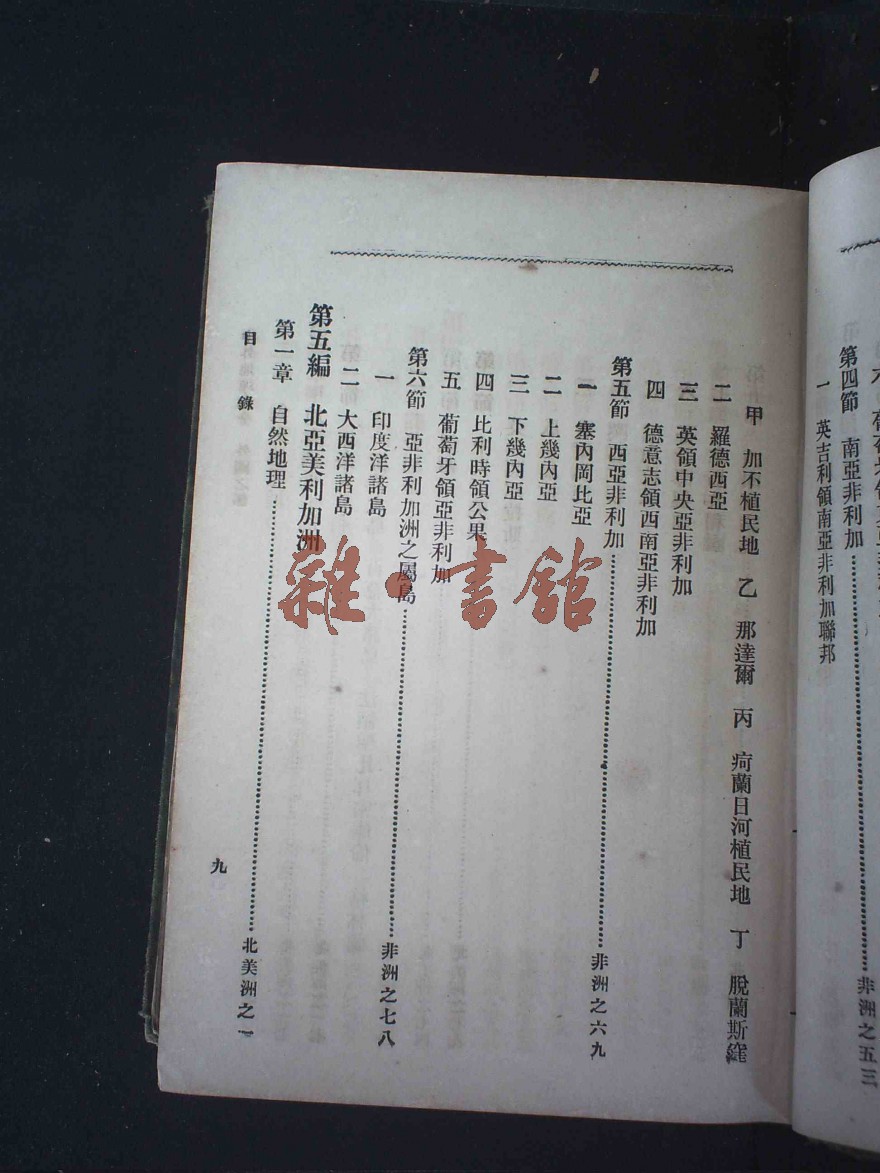 第四節　南亞非利加……非洲之五三
一　英吉利領南亞非利加聯邦
甲　加不植民地　乙　那達爾　丙　疴蘭日河植民地　丁　脫蘭斯窪
二　羅德西亞
三　英領中央亞非利加
四　德意志領西南亞非利加
第五節　西亞非利加……非洲之六九
一　塞內岡比亞
二　上幾內亞
三　下幾內亞
四　比利時領公果
五　葡萄牙領亞非利加
第六節　亞非利加洲之屬島……非洲之七八
一　印度洋諸島
二　大西洋諸島
第五編　北亞美利加洲
第一章　自然地理……北美洲之一
目錄
九
雜·書館